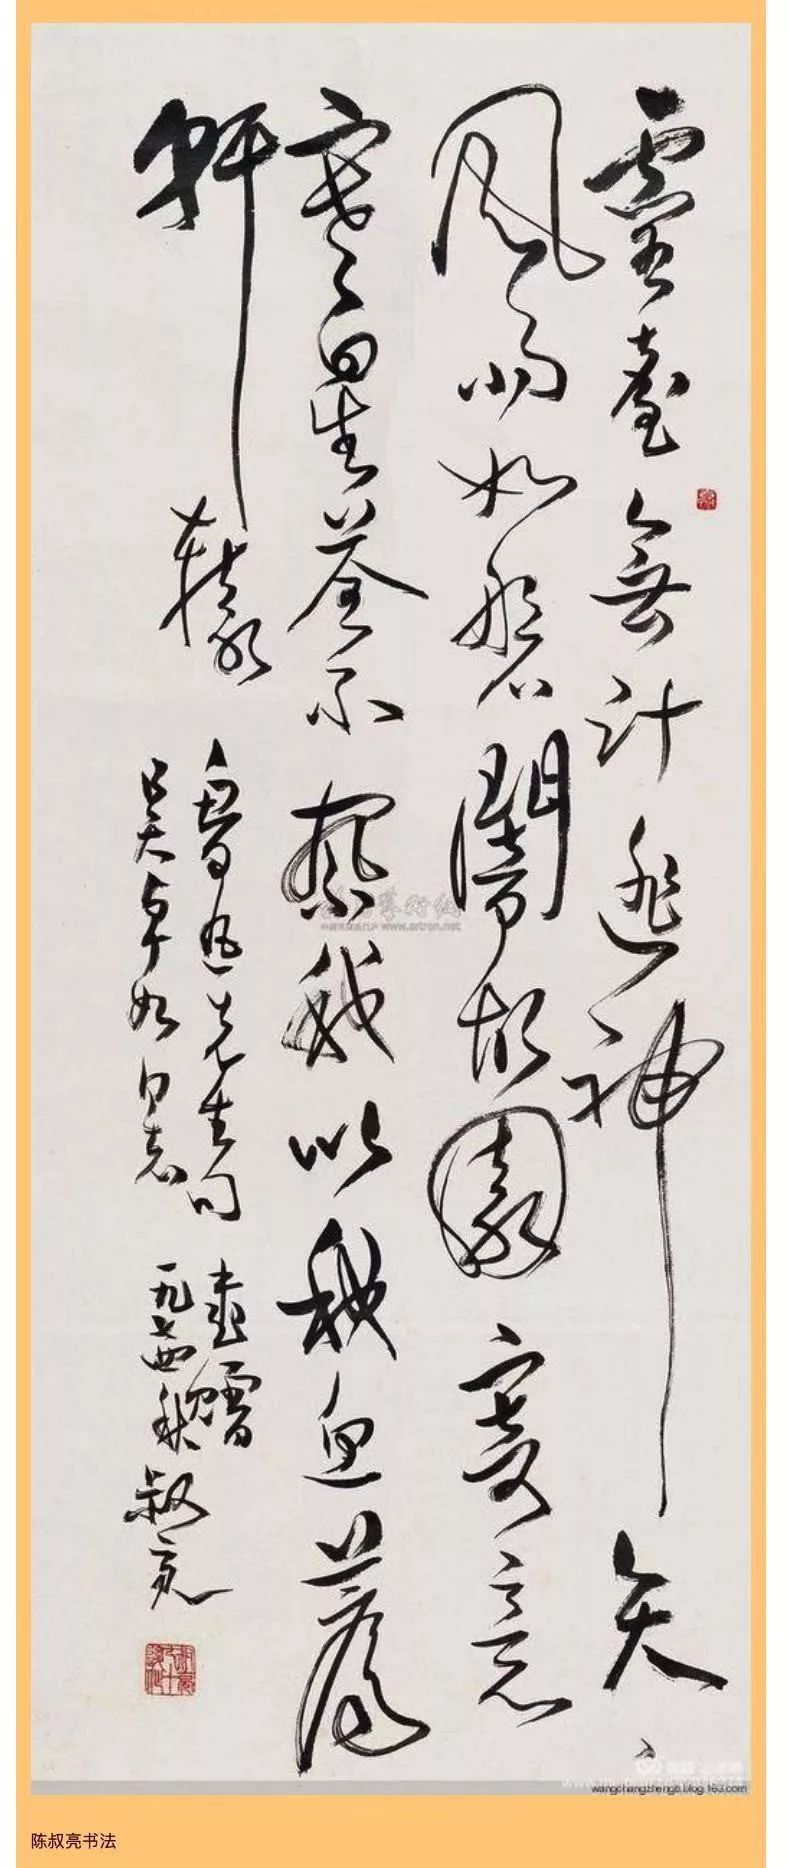 靈臺無計逃神矢
風雨如磐闇故園寄意
寒星荃不察我以我血薦
軒轅
魯迅先生句 書贈
吳卓如同志 一九七四秋 叔亮
www.artron.net
wangchangzhengb.blog.163.com
陈叔亮书法